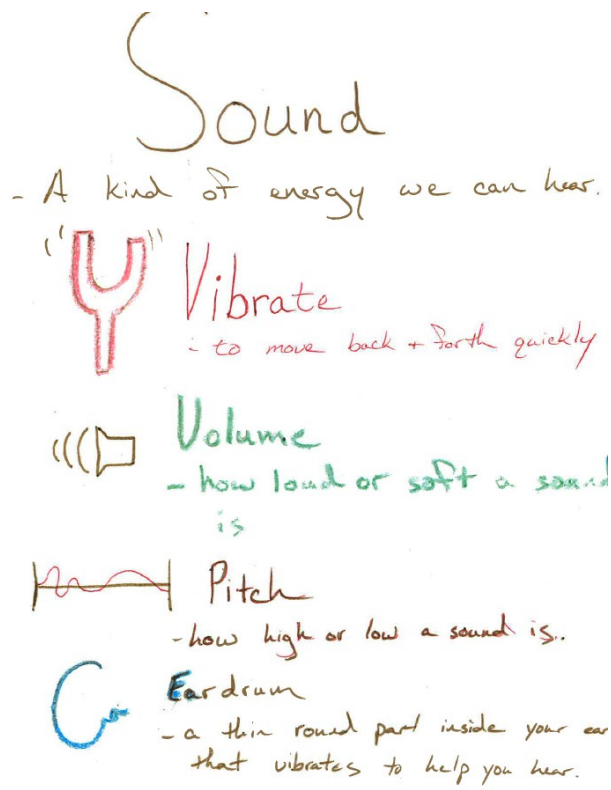 Sound
- A kind of energy we can hear.
Vibrate
- to move back + forth quickly
Volume
- how loud or soft a sound
is
Pitch
- how high or low a sound is..
Eardrum
- a thin round part inside your ear
that vibrates to help you hear.